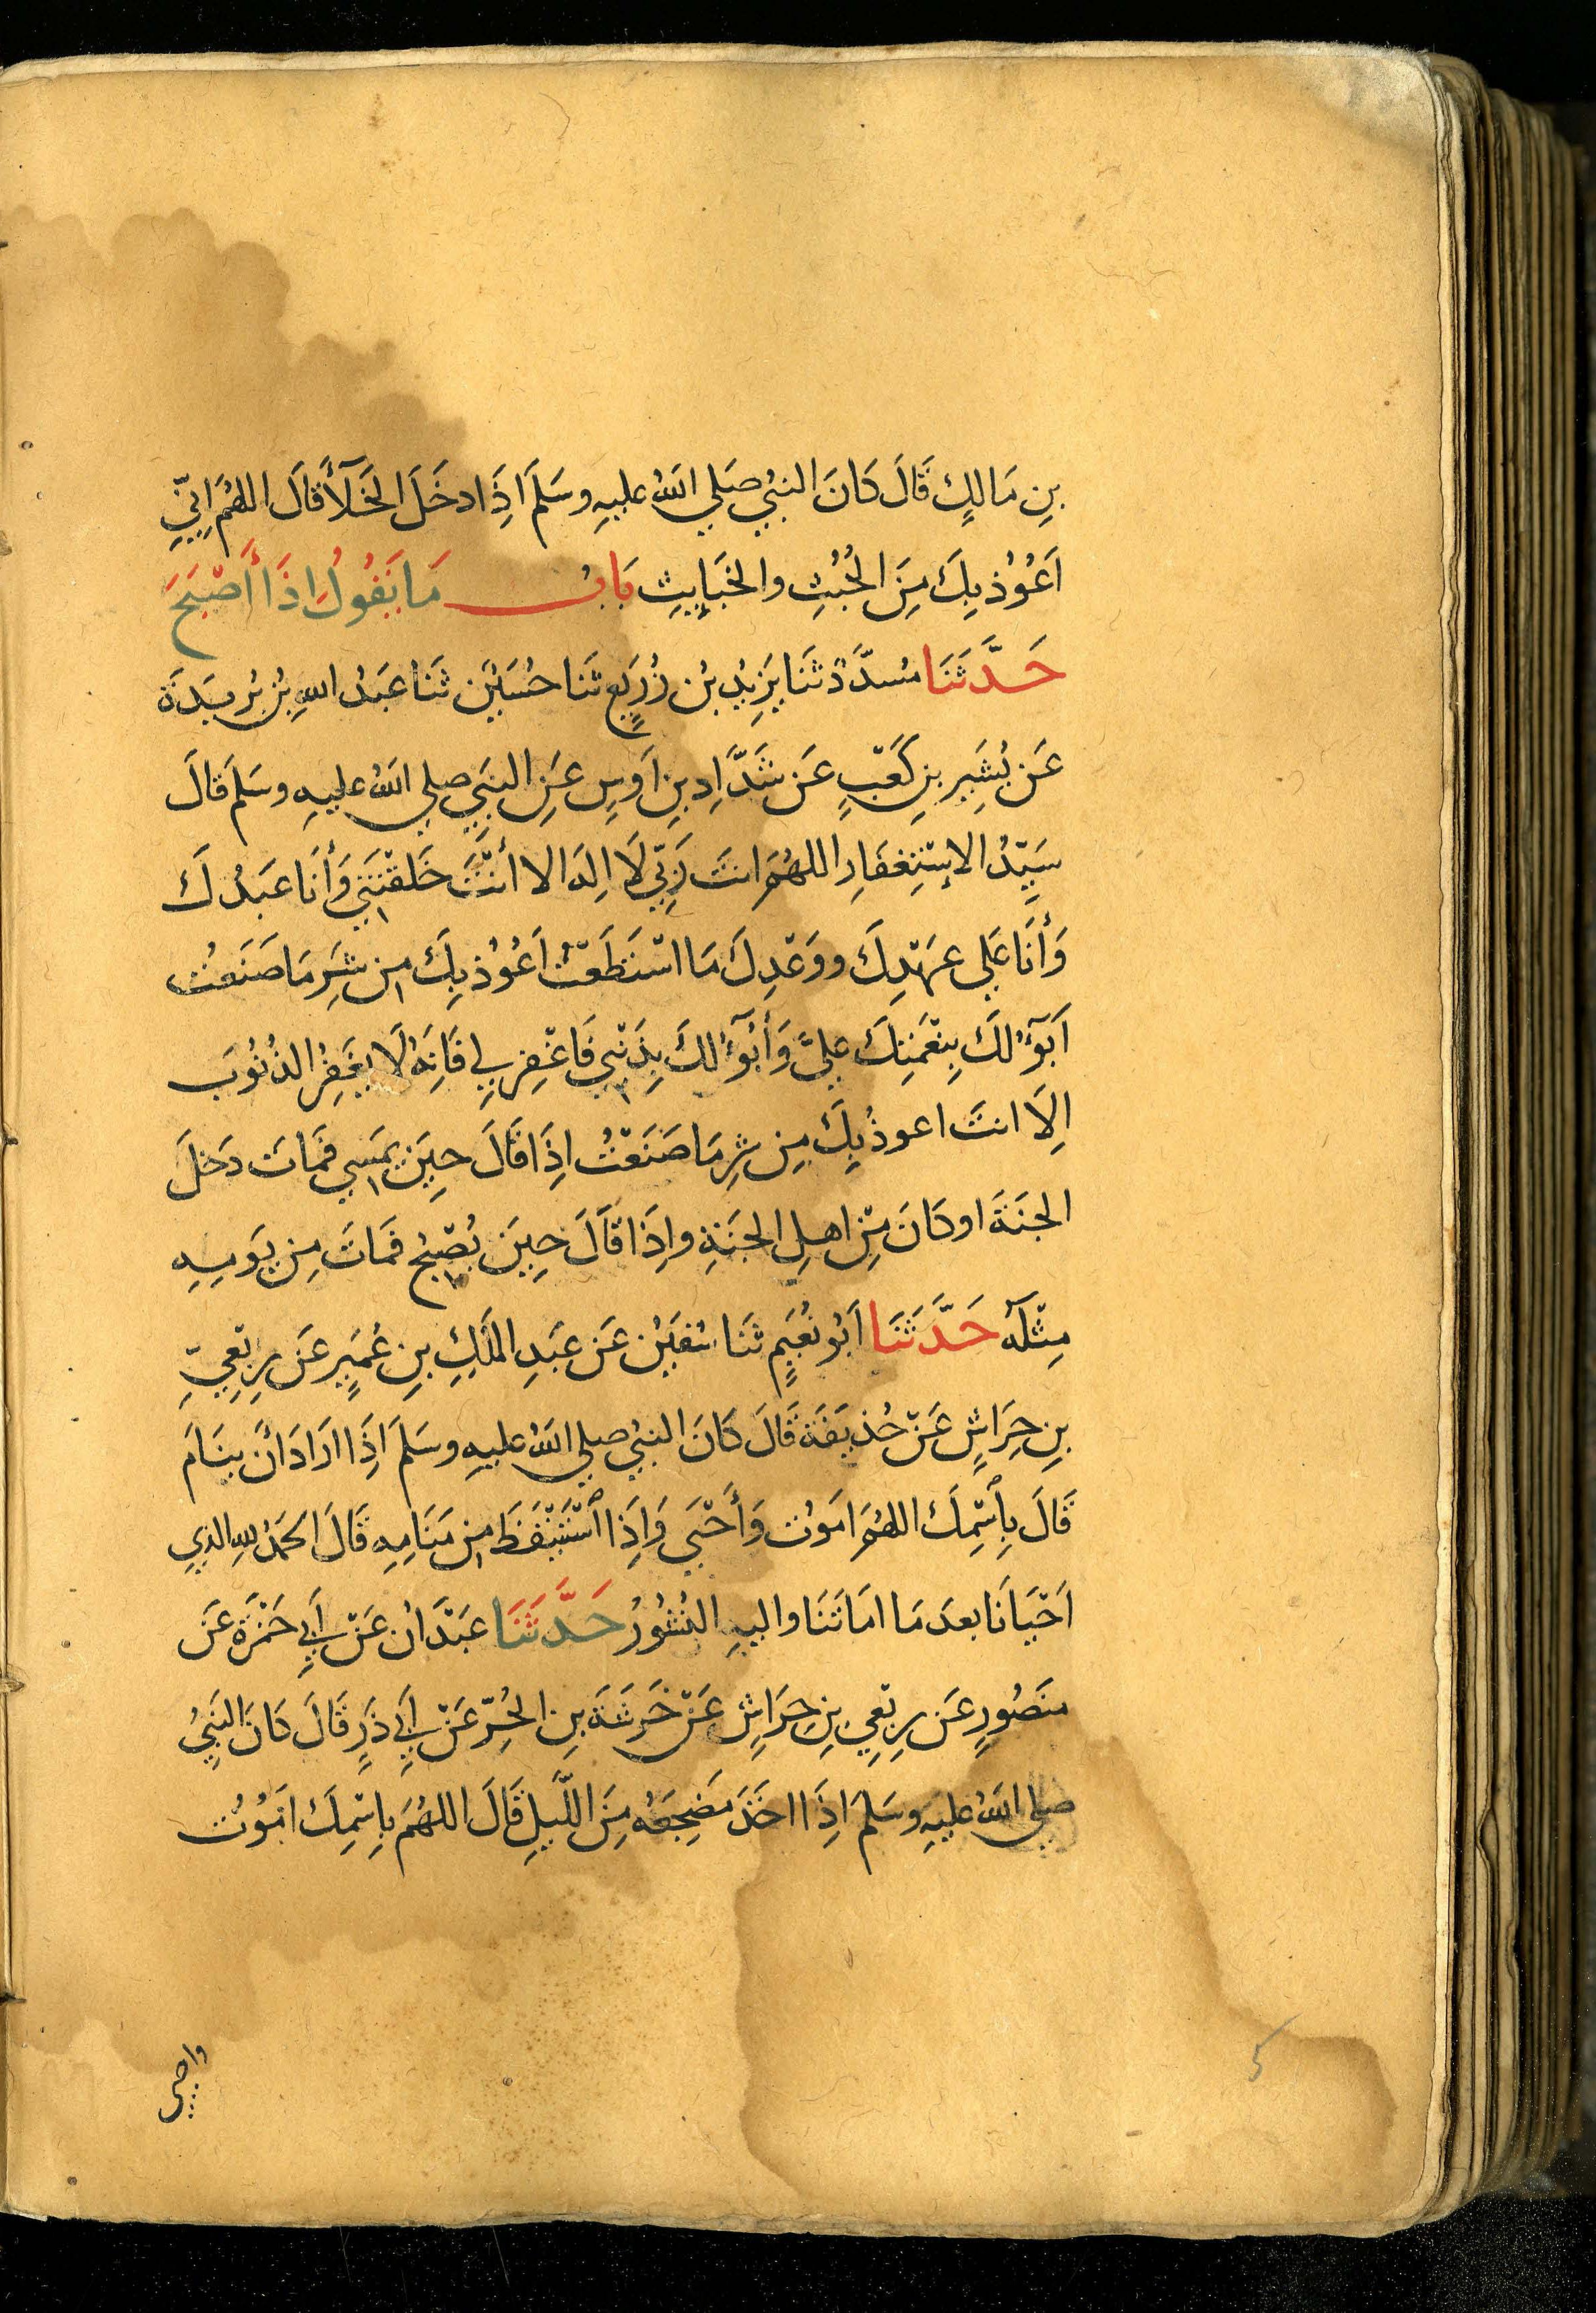 بنِ مَالِكٍ قَالَ كَانَ النبيُ صَلي اللهُ عليهِ وسَلمَ اِذَا دخَلَ الخَلآَ قالَ اللهُمَ اِنِّي
اَعُوُذ بِكَ مِنَ الخُبُثِ والخَبَايِثِ بَابُ مَا يَقُولُ اِذَا أَصْبَحَ
حَدَّثَنَا مُسدَّدٌ ثنَا يَزِيدُ بْن زُرَيعٍ ثنَا حُسَيْن ثنَا عَبدُ اللهِ بْنُ بُرَيدَة
عَن بُشَيرِ بنِ كَعْبٍ عَن شَدَّادِ بنِ اَوسٍ عَنِ النبَيِ صلي اللهُ عليهِ وسَلمَ قالَ
سَيِّدُ الاِسْتِغفَارِ اللهُمَ انتَ رَبِّي لَا اِلهَ الا أنْتَ خَلقْتَنَي وَأنَا عَبدُكَ
وَأنَا عَلي عهَدِكَ ووَعْدِكَ مَا اسْتَطَعْتُ اَعُوُذ بِكَ مِن شَرِ مَا صَنَعتُ
اَبَوٓءُ لكَ بِنعْمَتِكَ عليَّ وَأبُوٓءُ لكَ بِذَنْبِي فَاغْفِر لِي فَاِنَهُ لَا يغَفِرُ الذُنُوبَ
اِلَا انتَ اعوذُ بِكَ مِن شرِ مَا صَنَعْتُ اِذَا قَالَ حِينَ يمُسِي فمَاتَ دخَلَ
الجنَةَ او كَانَ مِنْ اهلِ الجنَةِ واِذَا قَالَ حِينَ يُصْبحُ فمَاتَ مِن يَومِهِ
مِثْلَهُ حَدَّثَنَا اَبُو نُعَيمٍ ثنَا سُفيَن عَن عَبدِ المَلِكِ بنِ عُمَيرٍ عَن رِبْعِيِّ
بنِ حِرَاشٍ عَنْ حُذيفَة قَالَ كَانَ النبيُ صلي اللهُ عليهِ وسَلمَ اِذَا ارَادَ أَنْ ينَامَ
قَالَ بِاسْمِكَ اللهُمَ امَوُت وَأَحْيَى وَاِذَا اسْتَيْقَظَ مِن مَنَامِهِ قَالَ الحَمُد للهِ الذِي
اَحْيَانَا بعدَ مَا امَاتَنَا واليهِ النُشُورُ حَدَّثَنَا عَبْدَانُ عَنْ اَبِي حَمْزَة عَن
منصُورٍ عَن رِبْعِي بنِ حِرَاشِ عَنْ خَرَشَةَ بنِ الحُرِّ عَنْ اَبِي ذَرٍ قَالَ كَانَ النَبيُ
صلي اللهُ عليهِ وسَلمَ اِذَا اخَذَ مَضجِعَهُ مِنَ اللَّيلِ قَالَ اللهُمَ بِاسْمِكَ امَوُت
واحيى
5